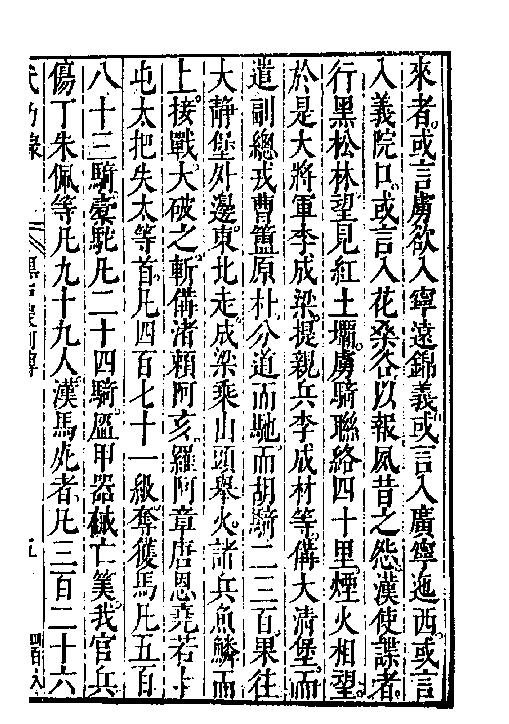 來者或言虜欲入寧遠錦義或言入廣寧迤西或言
入義院口或言入花桑谷以報夙昔之怨漢使諜者
行黑松林望見紅土壩虜騎聯絡四十里煙火相望
於是大將軍李成梁提親兵李成材等備大清堡而
遣副總戎曹簠原杜分道而馳而胡騎二三百果往
大靜堡外邊東北走成梁乘山頭舉火諸兵魚鱗而
上接戰大破之斬備渚賴阿亥羅阿章唐恩堯若卜
屯太把失太等首凡四百七十一級奪獲馬凡五百
八十三騎橐駝凡二十四騎盔甲器械亡筭我官兵
傷丁朱佩等凡九十九人漢馬死者凡三百二十六